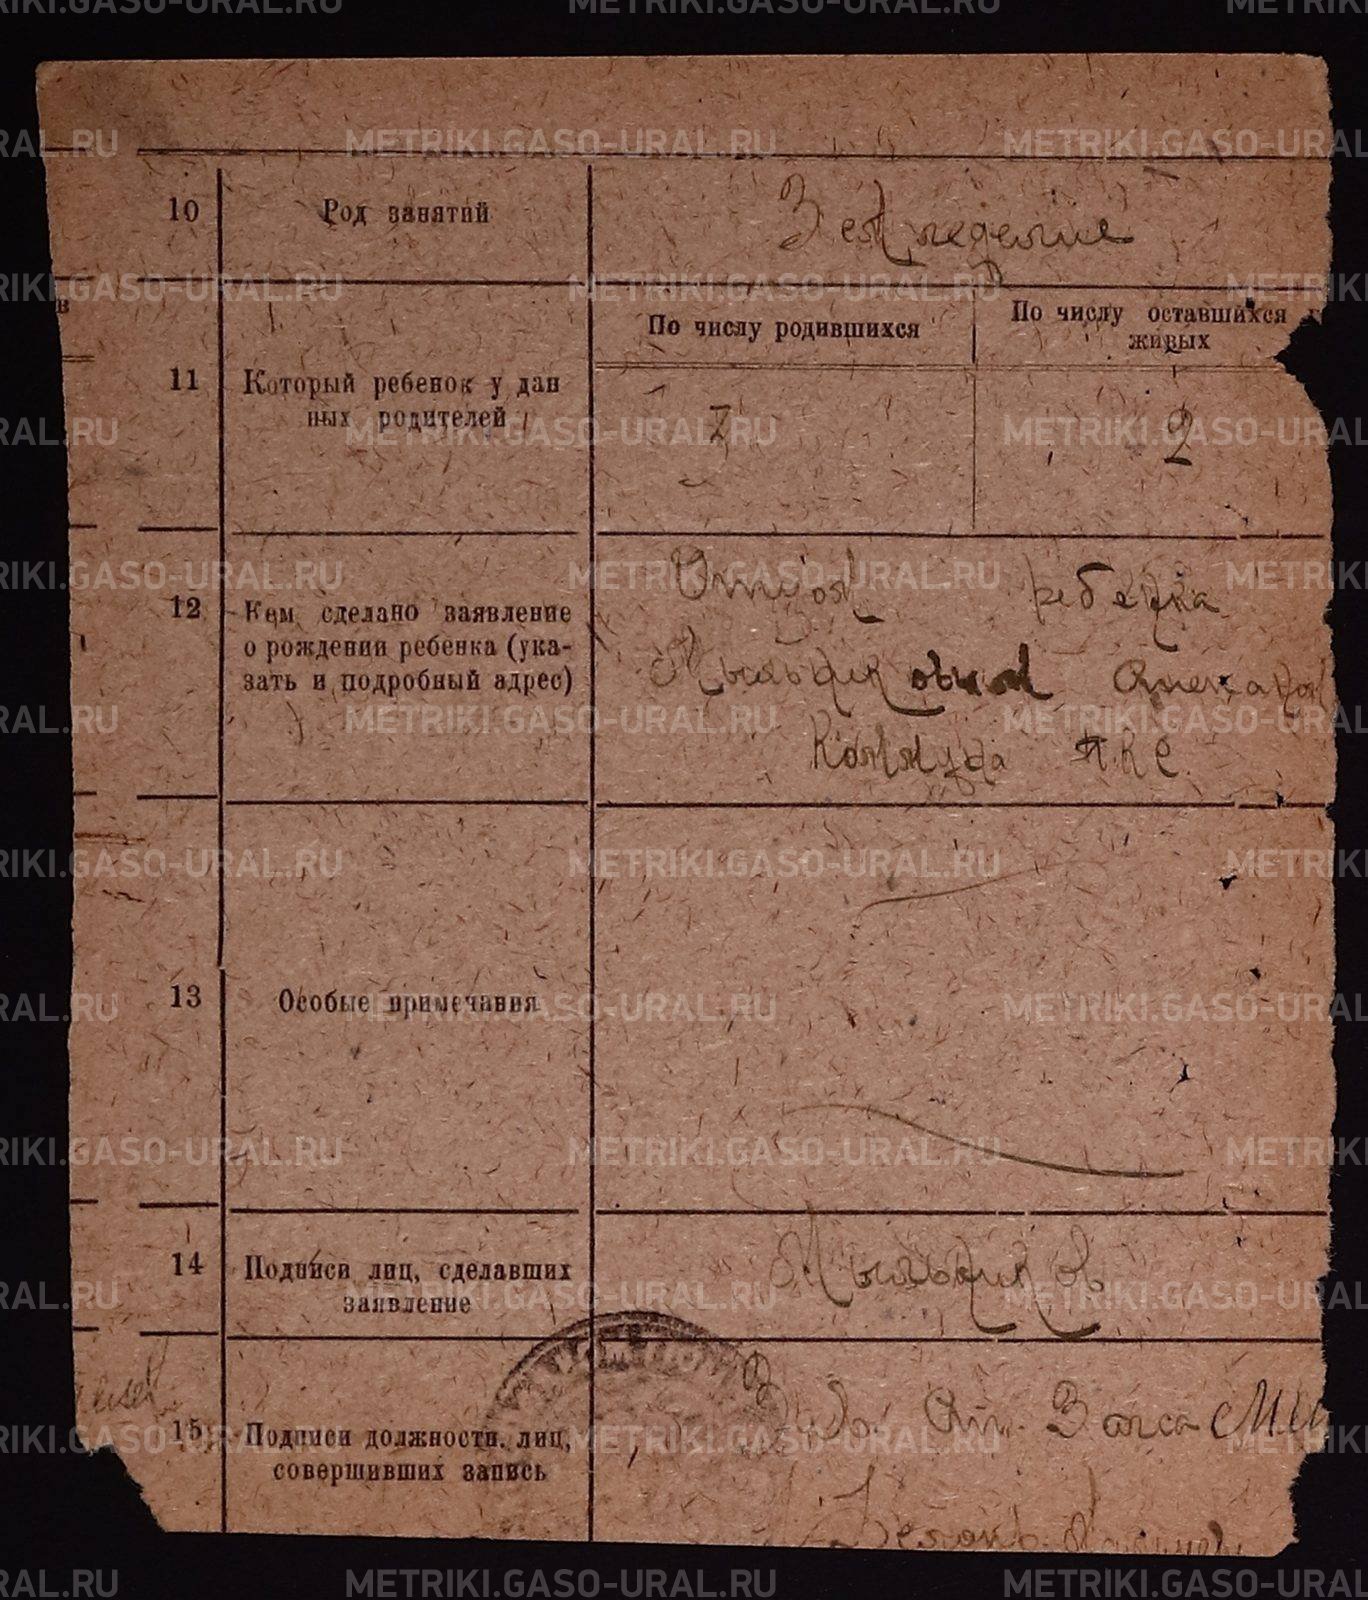 10
Род занятий
Земледелие
в
11
Который ребенок у дан
ных родителей
По числу родившихся
По числу оставшихся
живых
2
12
Кем сделано заявление
о рождении ребенка (ука-
зать и подробный адрес)
Отцом ребенка
Мыльниковым
13
Особые примечания
14
Подписи лиц, сделавших
заявление
Мыльников
15
Подписи должностн. лиц,
совершивших запись
Загса
METRIKI.GASO-URAL.RU